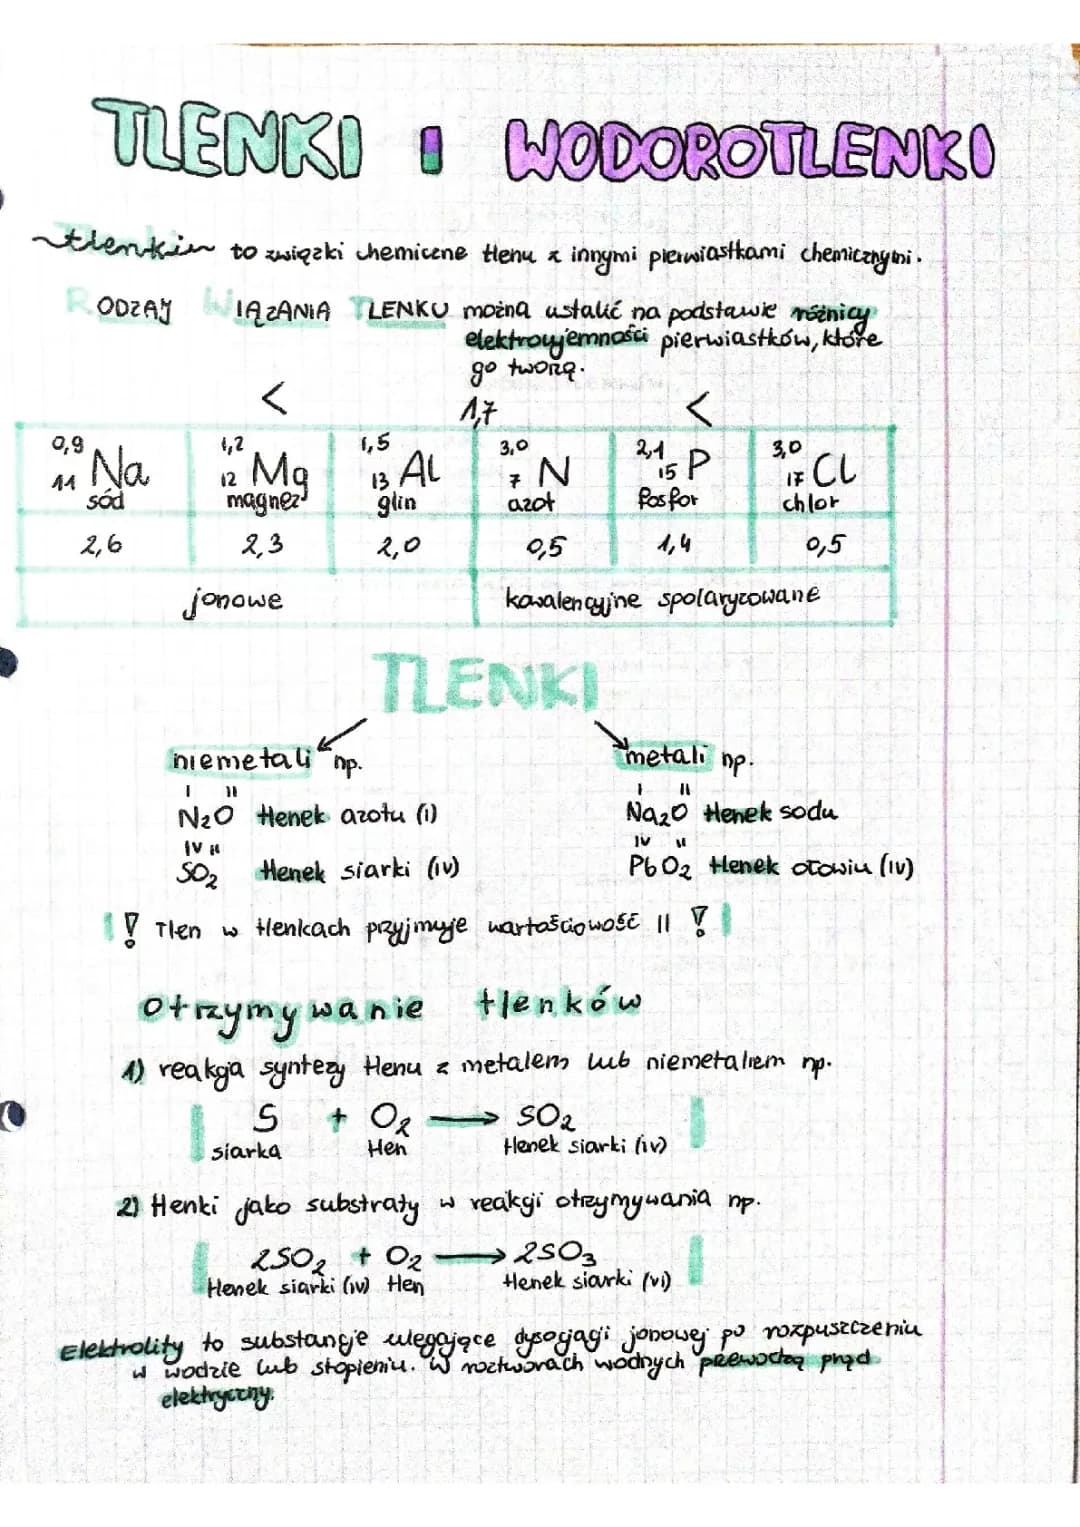 TLENKI I WODOROTLENKI
tlenki to związki chemiczne tlenu z innymi pierwiastkami chemicznymi.
RODZAJ WIĄZANIA TLENKU można ustalić na podstawie różnicy
elektroujemności pierwiastków, które
go tworzą.
< 1,7 <
0,9 1,2 1,5 3,0 2,1 3,0
11 Na 12 Mg 13 Al 7 N 15 P 17 Cl
sód magnez glin azot fosfor chlor
2,6 2,3 2,0 0,5 1,4 0,5
jonowe kowalencyjne spolaryzowane
TLENKI
niemetali np. metali np.
I II I II
N₂O tlenek azotu (I) Na₂O tlenek sodu
IV II IV II
SO₂ tlenek siarki (IV) PbO₂ tlenek ołowiu (IV)
! Tlen w tlenkach przyjmuje wartościowość II !
otrzymywanie tlenków
1) reakcja syntezy tlenu z metalem lub niemetalem np.
S + O₂ → SO₂
siarka tlen tlenek siarki (IV)
2) tlenki jako substraty w reakcji otrzymywania np.
2SO₂ + O₂ → 2SO₃
tlenek siarki (IV) tlen tlenek siarki (VI)
Elektrolity to substancje ulegające dysocjacji jonowej po rozpuszczeniu
w wodzie lub stopieniu. W roztworach wodnych przewodzą prąd
elektryczny.